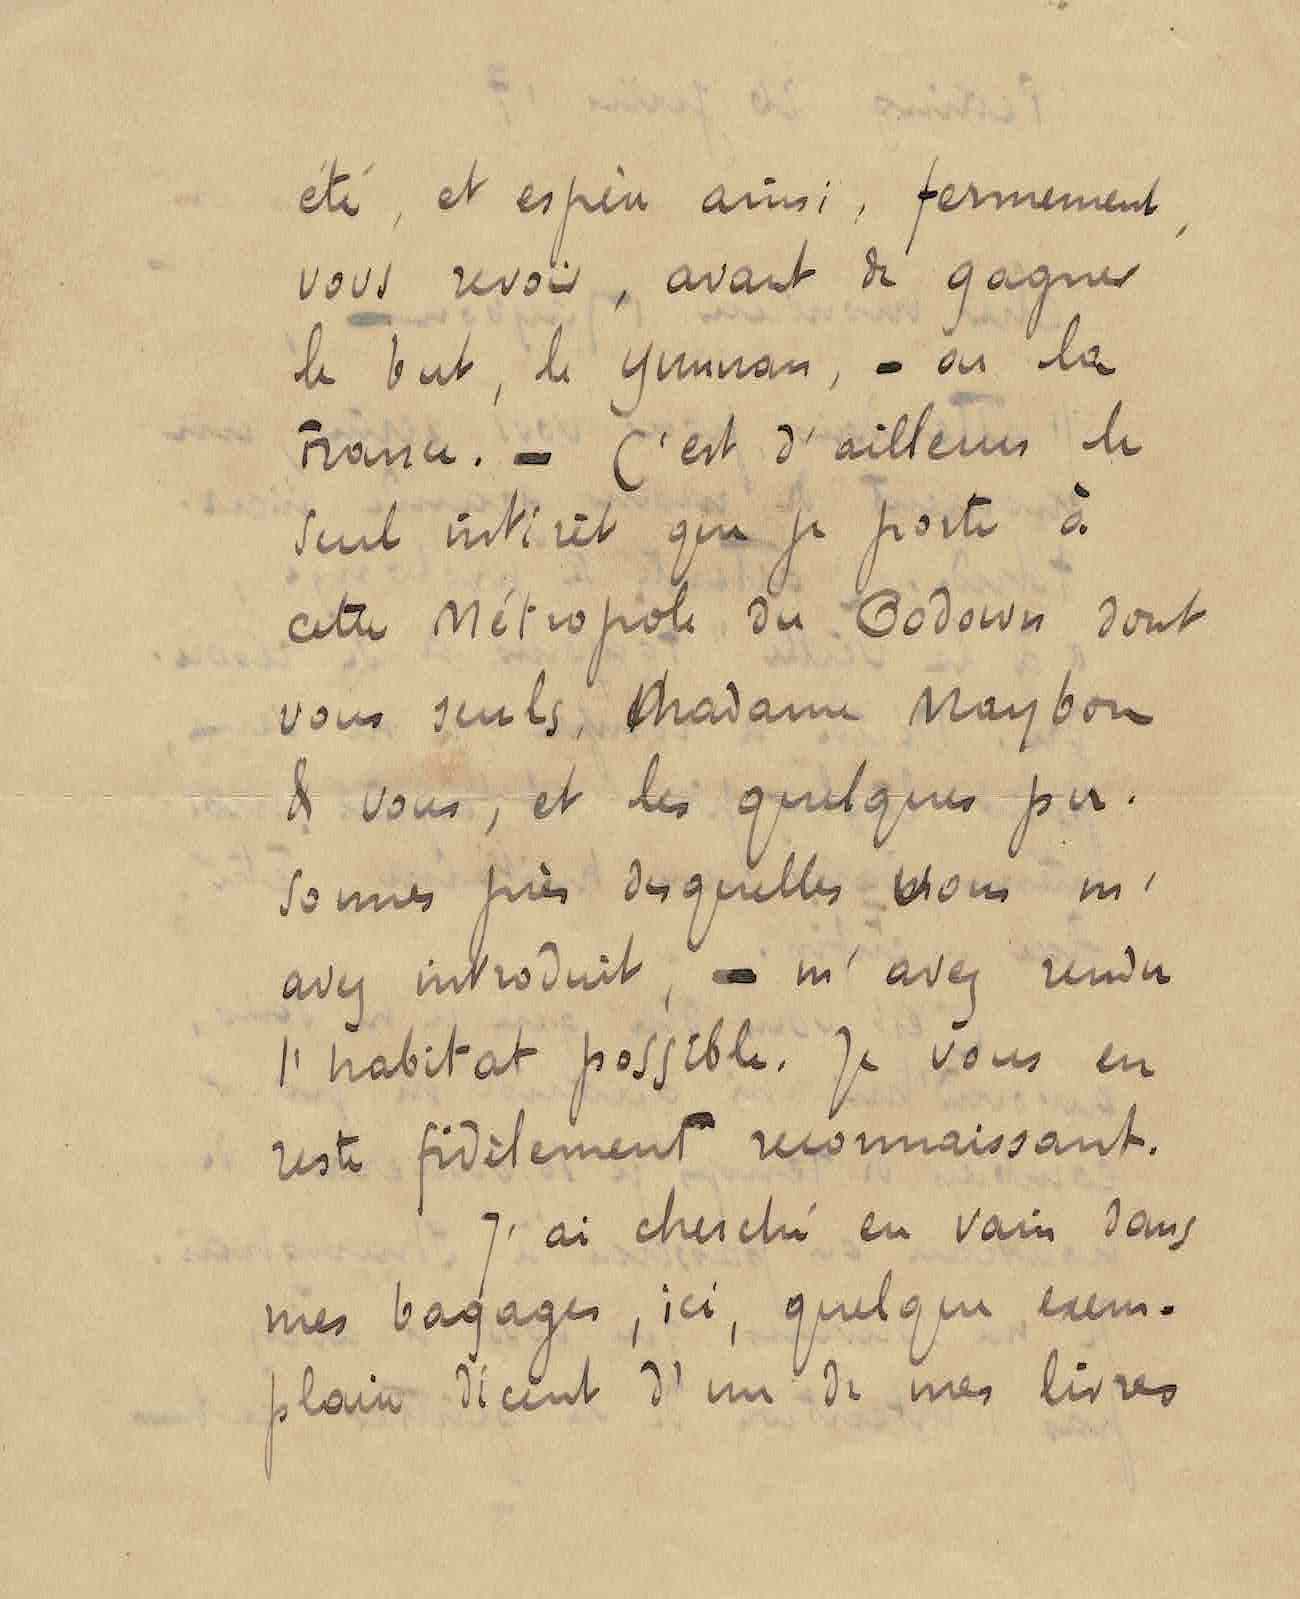 été, et espère ainsi, fermement,
vous revoir, avant de gagner
le but, le Yunnan, - ou la
France. - C'est d'ailleurs le
seul intérêt que je porte à
cette Métropole du Godown dont
vous seuls, Madame Maybon
& vous, et les quelques per-
sonnes près desquelles vous m'
avez introduit, - m'avez rendu
l'habitat possible. Je vous en
reste fidèlement reconnaissant.
J'ai cherché en vain dans
mes bagages, ici, quelque exem-
plaire décent d'un de mes livres